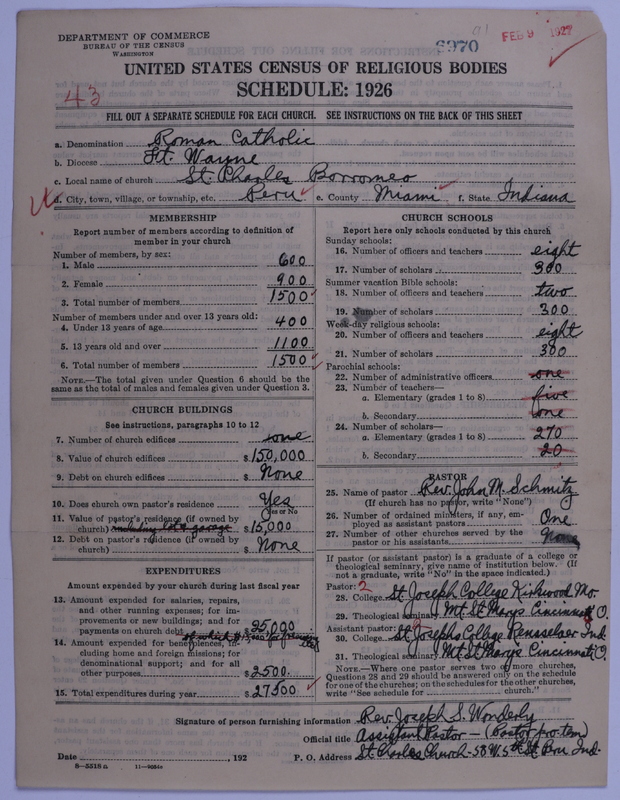 DEPARTMENT OF COMMERCE
BUREAU OF THE CENSUS
WASHINGTON
6970
FEB 9 1927
43
UNITED STATES CENSUS OF RELIGIOUS BODIES
SCHEDULE: 1926
FILL OUT A SEPARATE SCHEDULE FOR EACH CHURCH. SEE INSTRUCTIONS ON THE BACK OF THIS SHEET
a. Denomination Roman Catholic
b. Diocese Ft. Wayne
c. Local name of church St. Charles Borromeo
d. City, town, village, or township, etc. Peru e. County Miami f. State Indiana
MEMBERSHIP
Report number of members according to definition of
member in your church
Number of members, by sex:
1. Male 600
2. Female 900
3. Total number of members 1500
Number of members under and over 13 years old:
4. Under 13 years of age 400
5. 13 years old and over 1100
6. Total number of members 1500
NOTE.—The total given under Question 6 should be the
same as the total of males and females given under Question 3.
CHURCH BUILDINGS
See instructions, paragraphs 10 to 12
7. Number of church edifices one
8. Value of church edifices $150,000
9. Debt on church edifices $ None
10. Does church own pastor's residence Yes
Yes or No
11. Value of pastor's residence (if owned by
church) $15,000
12. Debt on pastor's residence (if owned by
church) $ None
EXPENDITURES
Amount expended by your church during last fiscal year
13. Amount expended for salaries, repairs,
and other running expenses; for im-
provements or new buildings; and for
payments on church debt $25,000
14. Amount expended for benevolences, in-
cluding home and foreign missions; for
denominational support; and for all
other purposes $2500
15. Total expenditures during year $27500
CHURCH SCHOOLS
Report here only schools conducted by this church
Sunday schools:
16. Number of officers and teachers eight
17. Number of scholars 300
Summer vacation Bible schools:
18. Number of officers and teachers two
19. Number of scholars 300
Week-day religious schools:
20. Number of officers and teachers eight
21. Number of scholars 300
Parochial schools:
22. Number of administrative officers one
23. Number of teachers—
a. Elementary (grades 1 to 8) five
b. Secondary one
24. Number of scholars—
a. Elementary (grades 1 to 8) 270
b. Secondary 20
PASTOR
25. Name of pastor Rev. John M. Schmitz
(If church has no pastor, write "None")
26. Number of ordained ministers, if any, em-
ployed as assistant pastors One
27. Number of other churches served by the
pastor or his assistants None
If pastor (or assistant pastor) is a graduate of a college or
theological seminary, give name of institution below. (If
not a graduate, write "No" in the space indicated.)
Pastor: 2
28. College St Joseph College Kirkwood Mo.
29. Theological seminary Mt St Marys Cincinnati O.
Assistant pastor:
30. College St Josephs College Rensselaer Ind
31. Theological seminary Mt St Marys Cincinnati O.
NOTE.—Where one pastor serves two or more churches,
Questions 28 and 29 should be answered only on the schedule
for one of the churches; on the schedules for the other churches,
write "See schedule for church."
Signature of person furnishing information Rev. Joseph S. Wonderly
Official title Assistant Pastor — (Pastor pro-tem)
Date , 192 P. O. Address St Charles Church - 58 W. 5th St. Peru Ind.
8—5518 a 11—9054a